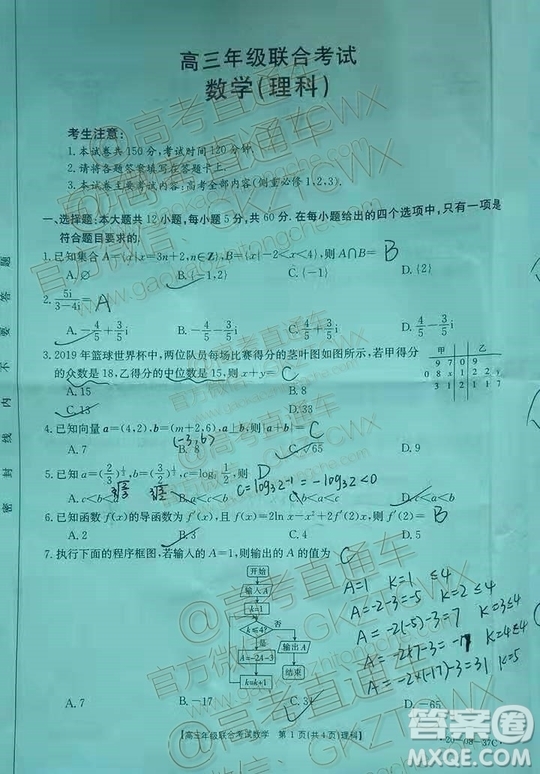 高三年级联合考试
数学(理科)
考生注意:
1.本试卷共150分,考试时间120分钟.
2.请将各题答案填写在答题卡上.
3.本试卷主要考试内容:高考全部内容(侧重必修1,2,3).
一、选择题:本大题共12小题,每小题5分,共60分.在每小题给出的四个选项中,只有一项是
符合题目要求的.
1.已知集合A={x|x=3n+2,n∈Z},B={x|-2<x<4},则A∩B= B
A.∅ B.{-1,2} C.{-1} D.{2}
2. 5i/(3-4i)= A
A.-4/5+3/5i B.-4/5-3/5i C.4/5+3/5i D.4/5-3/5i
3.2019年篮球世界杯中,两位队员每场比赛得分的茎叶图如图所示,若甲得分
的众数是18,乙得分的中位数是15,则x+y= C
甲 乙
9 7 0 9
0 8 x 1 2 y
3 1 2 1 1
A.15 B.10
C.13
4.已知向量a=(4,2),b=(m+2,6),a⊥b,则|a+b|= C
(-3,6)
A.7 B.8 C.√65 D.9
5.已知a=(2/3)
,b=(3/2)
,c=log
1/2,则 D
c=log₃2⁻¹=-log₃2<0
A.c<b<a
D.c<a<b
6.已知函数f(x)的导函数为f′(x),且f(x)=2ln x-x²+2f′(2)x,则f′(2)= B
A.2 B.3 C.4 D.5
7.执行下面的程序框图,若输入的A=1,则输出的A的值为 C
开始
输入A
k=1
k≤4?
输出A
A=-2A-3
结束
k=k+1
A=1 K=1 ≤4
A=-2-3=-5 K=2≤4
A=-2(-5)-3=7 K=3≤4
A=-2×7-3=-17 K=4
A=-2×(-17)-3=31 K=5
A.7 B.-17 C.31 D.-65
【高三年级联合考试数学 第1页(共4页)理科】
·20-08-37C·
密 封 线 内 不 要 答 题
@高考直通车
官方微信:GKZTCWX
答案圈
MXQE.COM